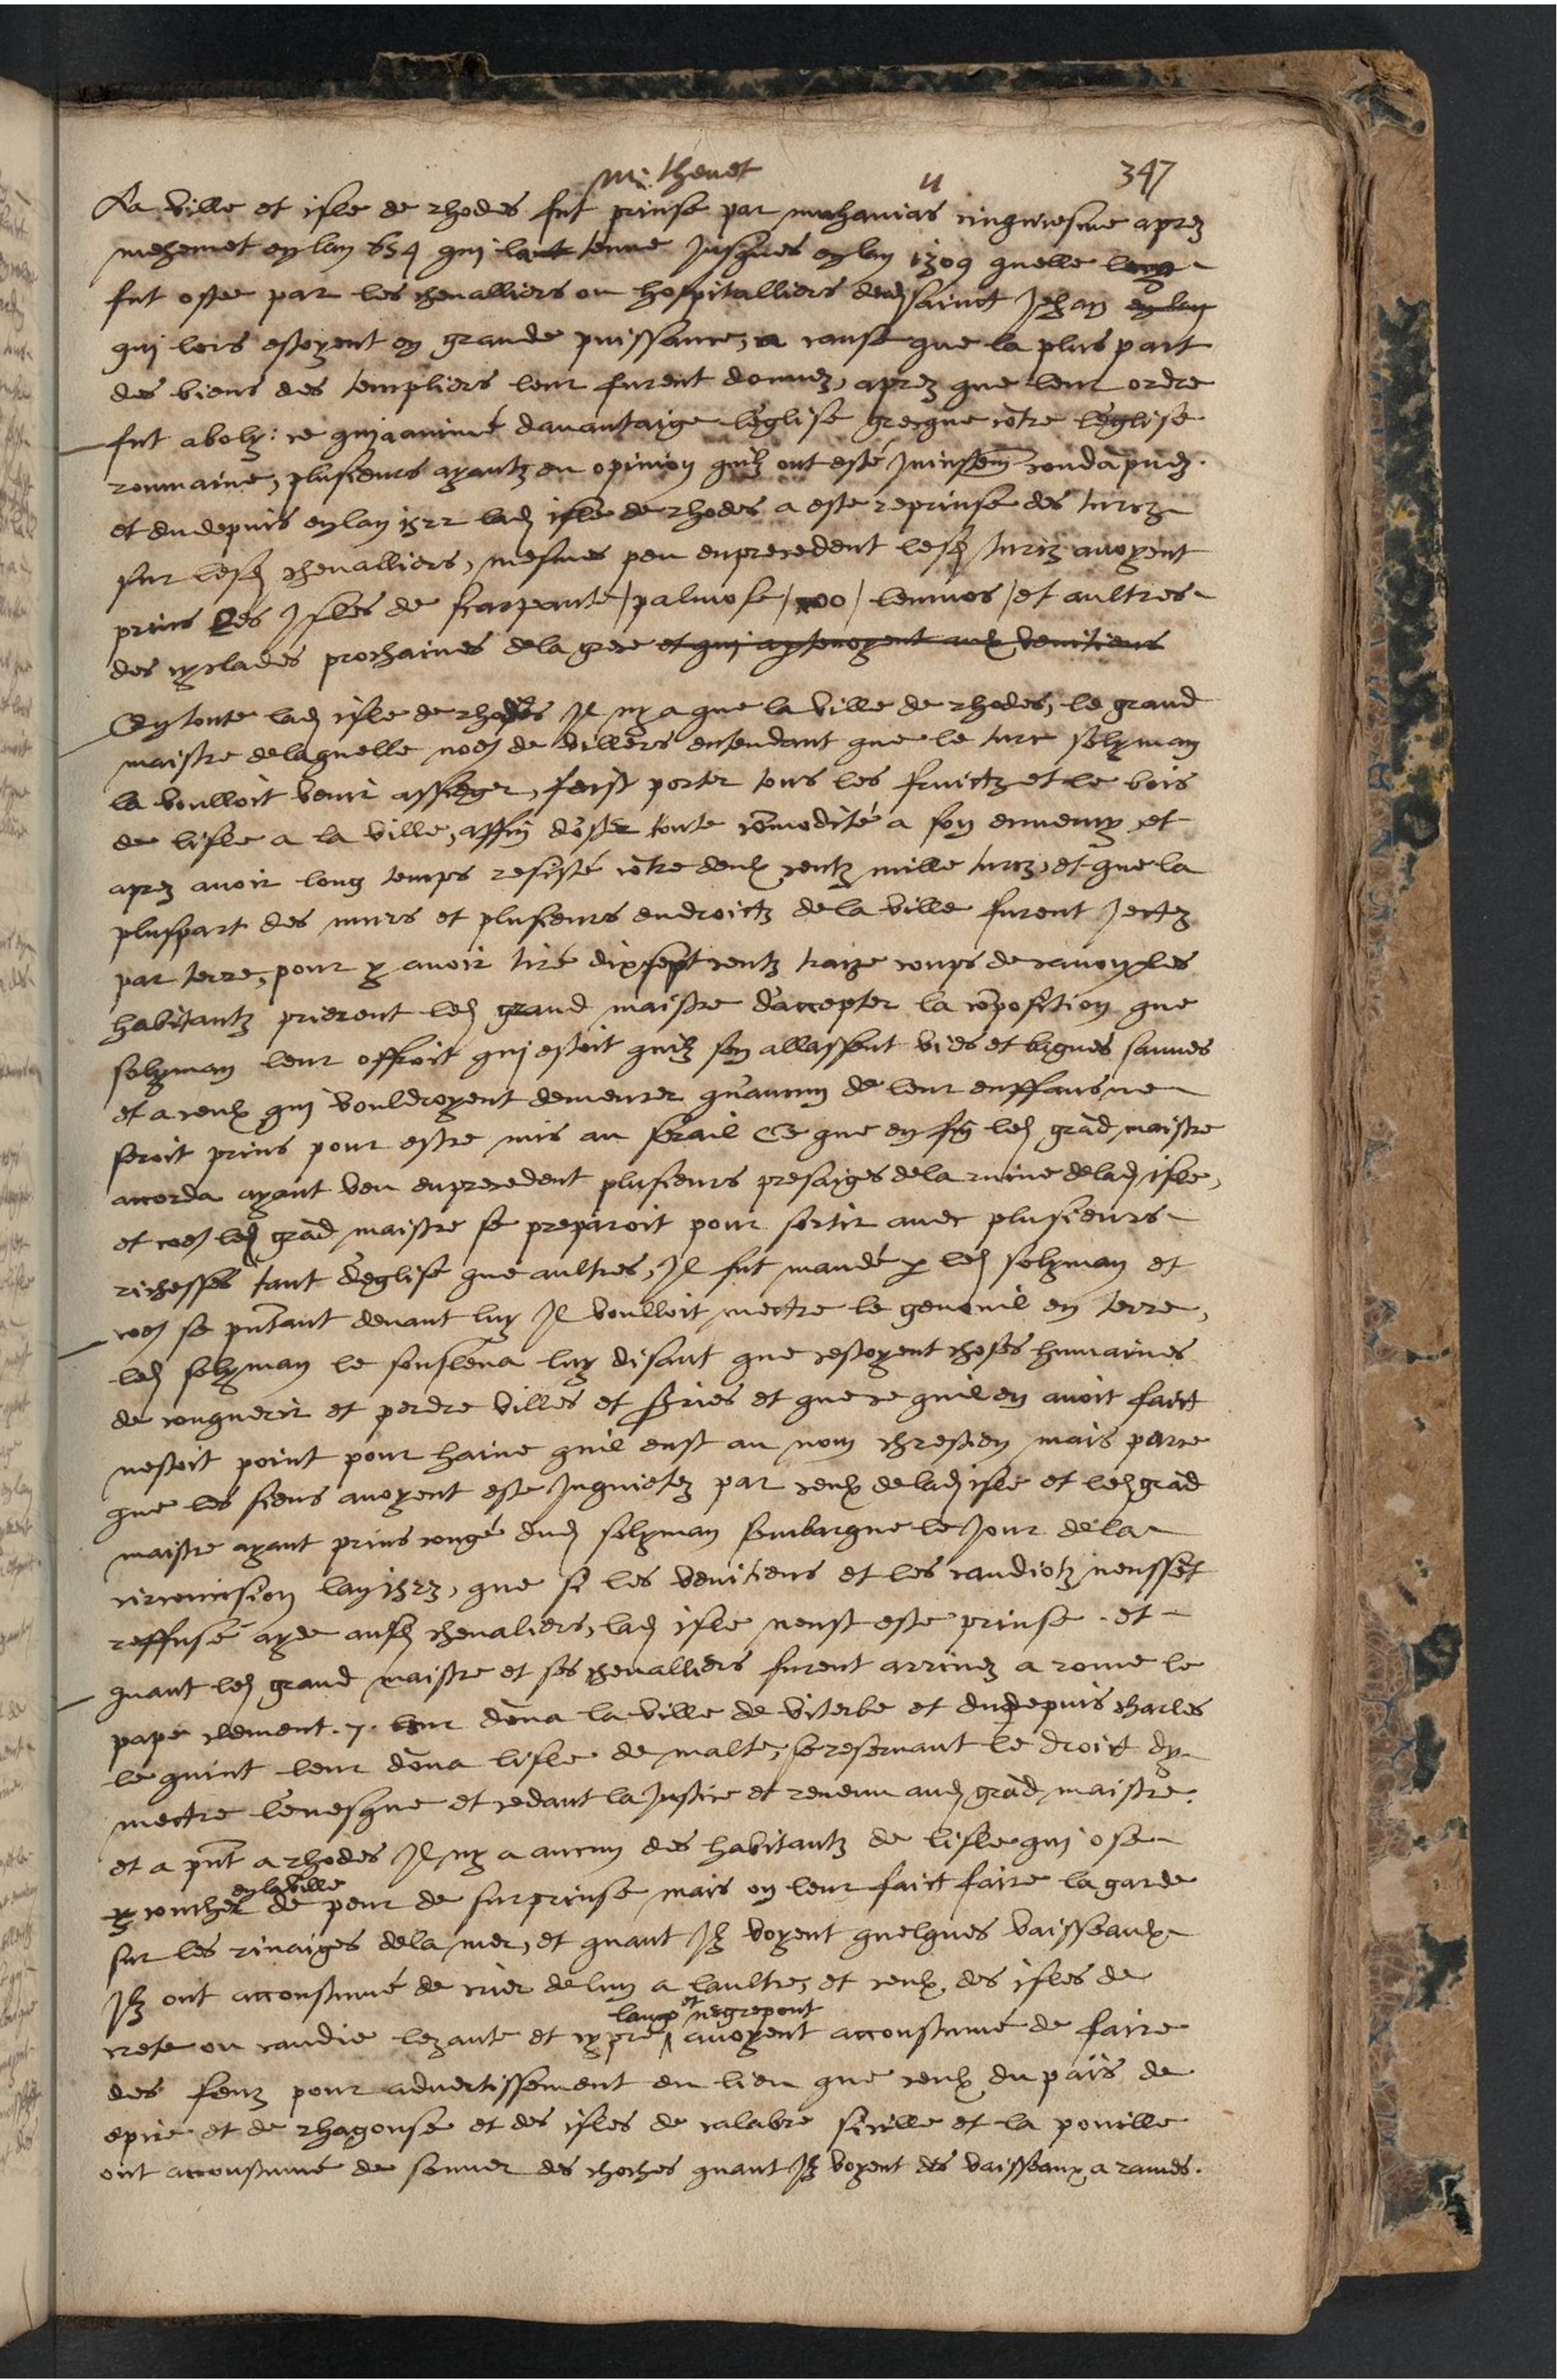 mr thevet
11
347
La ville et isle de rhodes fut prinse par muhavias cinqwiesme aprez
mehemet en lan 654 qui la tenue jusques en lan 1309 quelle leur
fut ostee par les chevalliers ou hospitalliers dud sainct Jehan en lan
qui lors estoyent en grande puissance, a cause que la plus part
des biens des templiers leur furent donnez, aprez que leur ordre
fut aboly: ce qui a animé davantaige leglise grecque cōtre leglise
rommaine, plusieurs ayantz eu opinion quilz ont esté
et dudepuis en lan 1522 lad isle de rhodes a este reprinse des turcz
sur lesd chevalliers, mesmes peu enprecedent lesd turcz avoyent
prins les Isles de scarpante / palmose / coo / lemnos / et aultres
des cyclades prochaines de la grece et qui aptenoyent aux venitiens
En toute lad isle de rhodes Il ny a que la ville de rhodes, le grand
maistre de laquelle de villers entendant que le turc solyman
la voulloit venir assieger, feist porter tous les fruictz et le bois
de lisle a la ville, affin doster toute cōmodité a son ennemy et
aprez avoir long temps resisté cōtre deux centz mille turcz, et que la
pluspart des murs et plusieurs endroictz de la ville furent Jectez
par terre, pour y avoir tiré dixsept centz traize coups de canon, les
habitantz prierent led grand maistre d'accepter la cōposition que
solyman leur offroit qui estoit quilz sen allassent vies et bagues sauves
et a ceulx qui vouldroyent demeurer qu'aucun de leur enffans ne
seroit prins pour estre mis au serail Ce que en fin led grād maistre
accorda ayant veu enprecedent plusieurs presaiges de la ruine de lad isle,
et coē led grād maistre se preparoit pour sortir avec plusieurs
richesses tant deglise que aultres, Il fut mandé p led solyman et
coē se pn̄tant devant luy Il voulloit mectre le genouil en terre,
led solyman le sousleva luy disant que cestoyent choses humaines
de conquerir et perdre villes et sries et que ce quil en avoit faict
nestoit point pour haine quil eust au nom chrestien mais parce
que les siens avoyent este Inquietez par ceulx de lad isle et led grād
maistre ayant prins congé dud solyman sembarque le Jour de la
circoncision lan 1523, que si les venitiens et les candiotz neussēt
reffusé ayde ausd chevaliers, lad isle neust este prinse . et
quant led grand maistre et ses chevalliers furent arrivez a rome le
pape clement .7. leur dōna la ville de viterbe et dudepuis charles
le quint leur dōna lisle de malte, se reservant le droict dy
mectre levesque et cedant la Justice et revenu aud grād maistre.
et a pn̄t a rhodes Il ny a aucun des habitantz de lisle qui ose
en la ville
y coucher de peur de surprinse mais on leur faict faire la garde
sur les rivaiges de la mer, et quant Ilz voyent quelques vaisseaulx
Ilz ont accoustumé de crier de lun a laultre, et ceulx des isles de
et negrepont
crete ou candie lezante et cypre avoyent accoustumé de faire
des feuz pour advertissement au lieu que ceulx du païs de
epire et de rhagouse et des isles de calabre sicille et la pouille
ont accoustumé de sonner des cloches quant Ilz voyent des vaisseaux a rames.